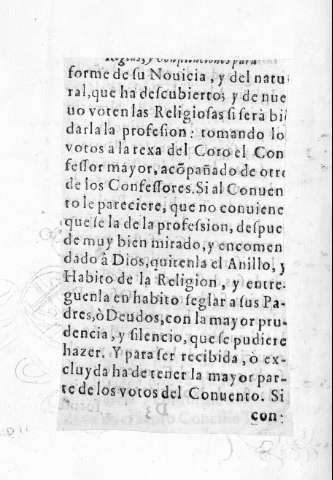 Reglas, y Constituciones para
forme de su Nouicia, y del natu
ral, que ha descubierto; y de nue
uo voten las Religiosas si será bi
darla la profesion: tomando lo
votos a la rexa del Coro el Con
fessor mayor, acõpañado de otro
de los Confessores. Si al Conuen
to le pareciere, que no conuiene
que se la de la profession, despue
de muy bien mirado, y encomen
dado à Dios, quitenla el Anillo, y
Habito de la Religion, y entre-
guenla en habito seglar a sus Pa-
dres, ò Deudos, con la mayor pru-
dencia, y silencio, que se pudiere
hazer. Y para ser recibida, ò ex-
cluyda ha de tener la mayor par-
te de los votos del Conuento. Si
con: